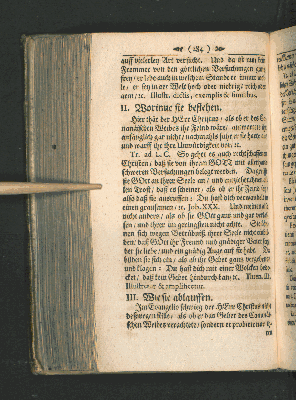 ( 284 )
auff vielerley Art versucht. Und da ist nun kein
Frommer von den göttlichen Versuchungen gantz
frey / er lebe auch in welchem Stande er immer wol-
le / er sey in der Welt hoch oder niedrig / reich oder
arm / &c. Illustr. dictis, exemplis & similibus.
II. Worinne sie bestehen.
Hier thät der HErr Christus / als ob er des Ca-
nanäischen Weibes ihr Feind wäre / antwortete
anfänglich gar nicht / nachmahls
und warff ihr ihre Unwürdigkeit vor / &c.
Tr. ad L. C. So gehet es auch rechtschaffenen
Christen / daß sie von ihrem GOTT mit allerhand
schweren Versuchungen belegt werden.
sie GOtt an ihrer Seele an / und entziehet
den Trost / daß es scheinet / als ob er ihr Feind
also daß sie ausruffen: Du hast dich verwandelt in
einen grausamen / &c. Job. XXX. Und meinen
nicht anders / als ob sie GOtt gantz und gar verlas-
sen / und ihrer im geringsten nicht achte. Sie kön-
nen sich wegen Betrübniß ihrer Seele nicht
den / daß GOtt ihr Freund und gnädiger Vater sey /
der sie liebe / und ein gnädig Auge auf sie habe. Da
bilden sie sich ein / als ob ihr Gebet gantz vergebens /
und klagen: Du hast dich mit einer Wolcken bede-
cket / daß kein Gebet hindurch kan / &c. Thren. III.
Illustratur & amplificatur.
III. Wie sie ablauffen.
Im Evangelio schwieg der HErr Christus nicht
deßwegen stille / als ob er das Gebet des Cananäi-
schen Weibes verachtete / sondern er probierete ih-
ren